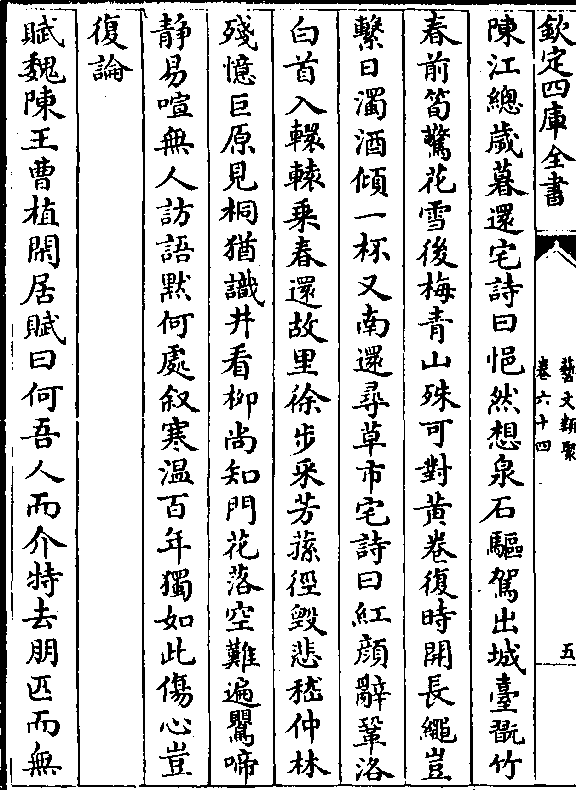 欽定四庫全書
藝文類聚
卷六十四
五
陳江總歲暮還宅詩曰悒然想泉石驅駕出城臺翫竹
春前筍驚花雪後梅青山殊可對黃卷復時開長繩豈
繫日濁酒傾一杯又南還尋草市宅詩曰紅顏辭鞏洛
白首入轘轅乗春還故里徐步采芳蓀徑毀悲嵇仲林
殘憶巨原見桐猶識井看柳尚知門花落空難遍鸎啼
静易喧無人訪語黙何處叙寒温百年獨如此傷心豈
復論
賦魏陳王曹植閑居賦曰何吾人而介特去朋匹而無